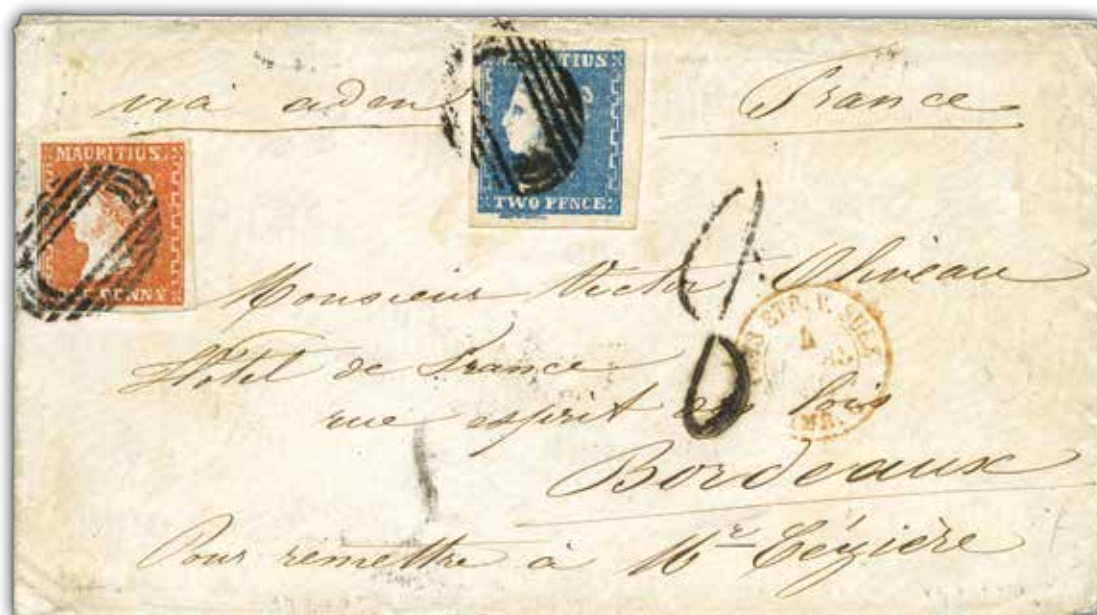 via aden France
MAURITIUS
TWO PENCE
MAURITIUS
PENNY
8
Monsieur Victor Oliveau
Hotel de France
rue esprit des lois
Bordeaux
Pour remettre à Mr Cézière
ETR. V. SUEZ
4
AMB.